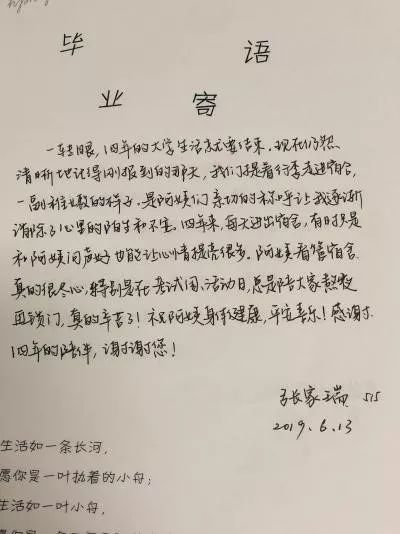 毕 语
业 寄
一转眼,四年的大学生活就要结束。现在仍然
清晰地记得刚报到的那天,我们提着行李走进宿舍,
一副稚嫩的样子。是阿姨们亲切的称呼让我逐渐
消除了心里的陌生和不安。四年来,每天进出宿舍,有时只是
和阿姨问声好也能让心情提亮很多。阿姨看管宿舍
真的很尽心,特别是在考试周、活动日,总是陪大家熬夜
再锁门,真的辛苦了!祝阿姨身体健康,平安喜乐!感谢
四年的陪伴,谢谢您!
张家瑞 515
2019.6.13
生活如一条长河,
愿你是一叶执着的小舟;
生活如一叶小舟,